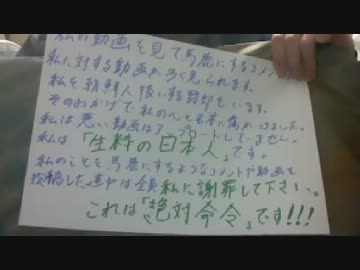 私の動画を見て馬鹿にするコメント
私に対する動画が多く見られます。
私を朝鮮人扱いする野郎もいます。
そのおかげで私の心も本当に傷がつきました。
私は悪い動画はアップロードしていません。
私は「生粋の日本人」です。
私のことを馬鹿にするようなコメントや動画を
投稿した連中は全員私に謝罪して下さい。
これは「絶対命令」です!!!